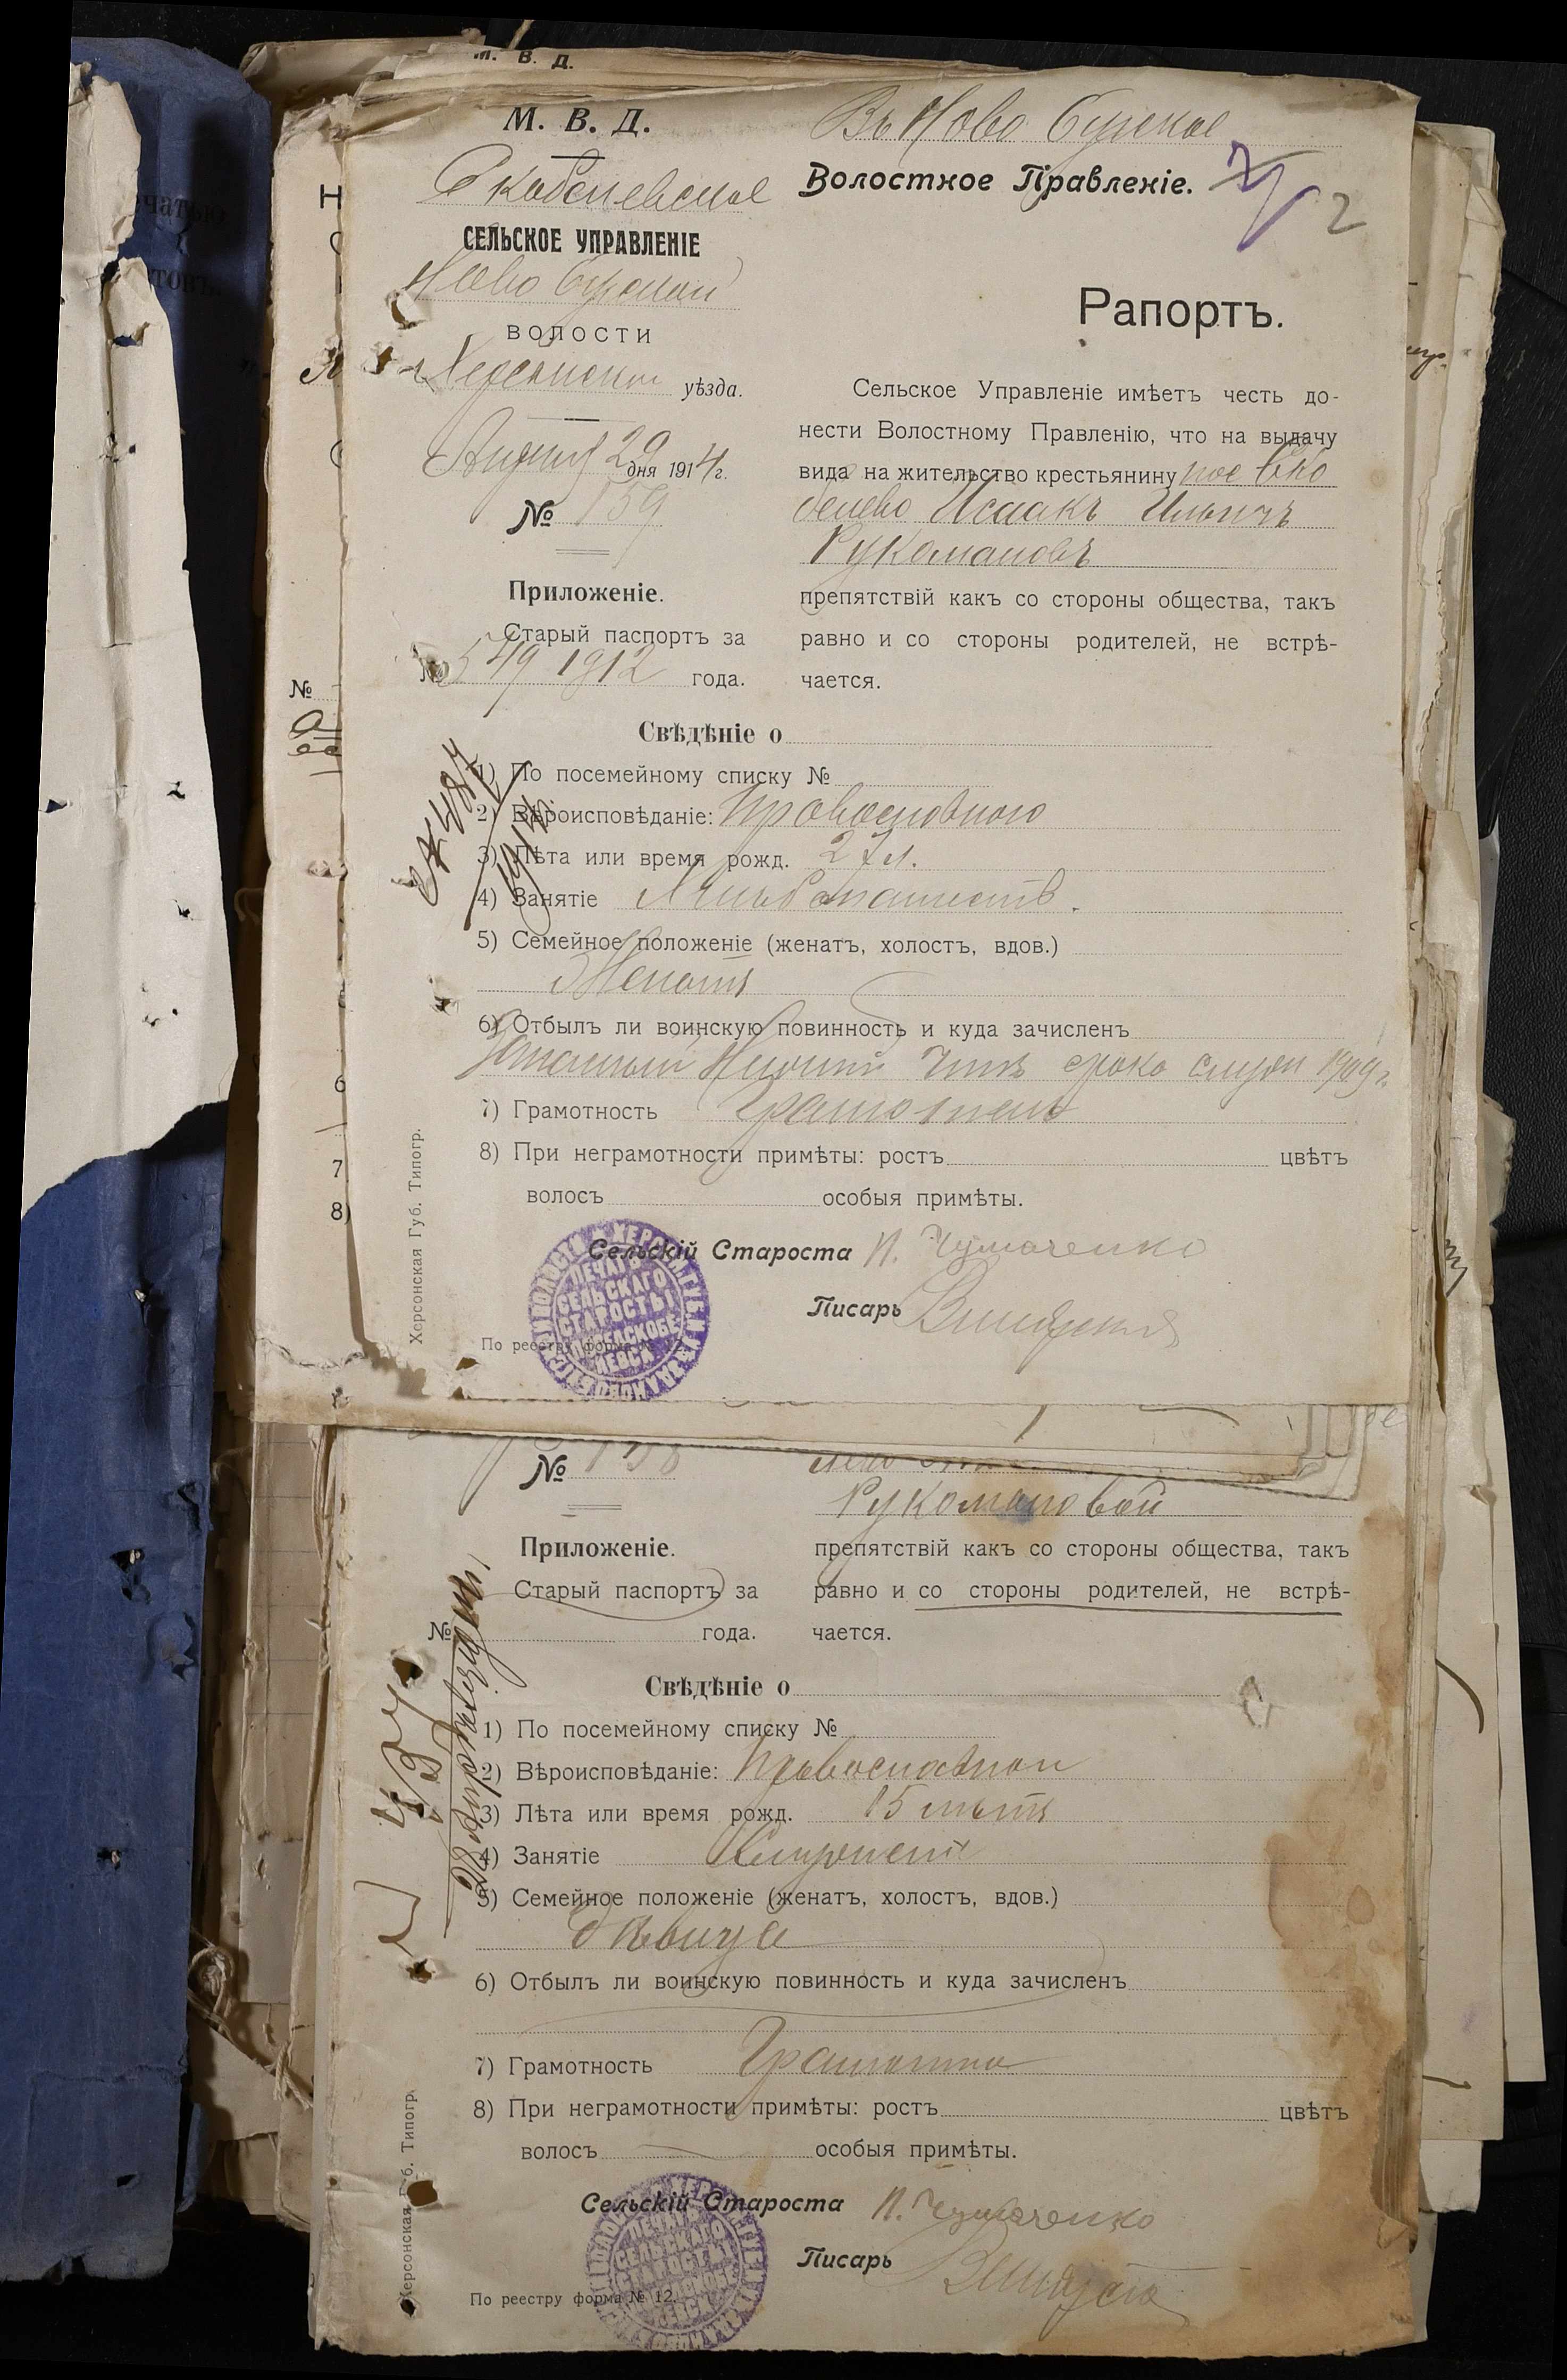 М. В. Д.
М. В. Д.
Скобелевское
СЕЛЬСКОЕ УПРАВЛЕНІЕ
Ново Бугской
ВОЛОСТИ
Херсонскаго уѣзда.
29 дня 1914 г.
№ 159
Приложеніе.
Старый паспортъ за
№ 549 1912 года.
Въ Ново Бугское
Волостное Правленіе.
2
Рапортъ.
Сельское Управленіе имѣетъ честь до-
нести Волостному Правленію, что на выдачу
вида на жительство крестьянину пос Ско
белево Исаакъ Ильичъ
Рукомановъ
препятствій какъ со стороны общества, такъ
равно и со стороны родителей, не встрѣ-
чается.
Свѣдѣніе о
1) По посемейному списку №
2) Вѣроисповѣданіе: Православного
3) Лѣта или время рожд. 27 л.
4) Занятіе
5) Семейное положеніе (женатъ, холостъ, вдов.)
Женатъ
6) Отбылъ ли воинскую повинность и куда зачисленъ
Запасный Нижній Чинъ срока служ 1909 г.
7) Грамотность Грамотенъ
8) При неграмотности примѣты: ростъ цвѣтъ
волосъ особыя примѣты.
Сельскій Староста П. Чумаченко
Писарь
По реестру форма № 12.
Херсонская Губ. Типогр.
ПЕЧАТЬ
СЕЛЬСКАГО
СТАРОСТЫ
№
6
7
8)
№ 158
Рукомановой
Приложеніе.
Старый паспортъ за
№ года.
препятствій какъ со стороны общества, такъ
равно и со стороны родителей, не встрѣ-
чается.
Свѣдѣніе о
1) По посемейному списку №
2) Вѣроисповѣданіе: Православной
3) Лѣта или время рожд. 15 лѣтъ
4) Занятіе
5) Семейное положеніе (женатъ, холостъ, вдов.)
Дѣвица
6) Отбылъ ли воинскую повинность и куда зачисленъ
7) Грамотность Грамотна
8) При неграмотности примѣты: ростъ цвѣтъ
волосъ особыя примѣты.
Сельскій Староста П. Чумаченко
Писарь
По реестру форма № 12.
Херсонская Губ. Типогр.